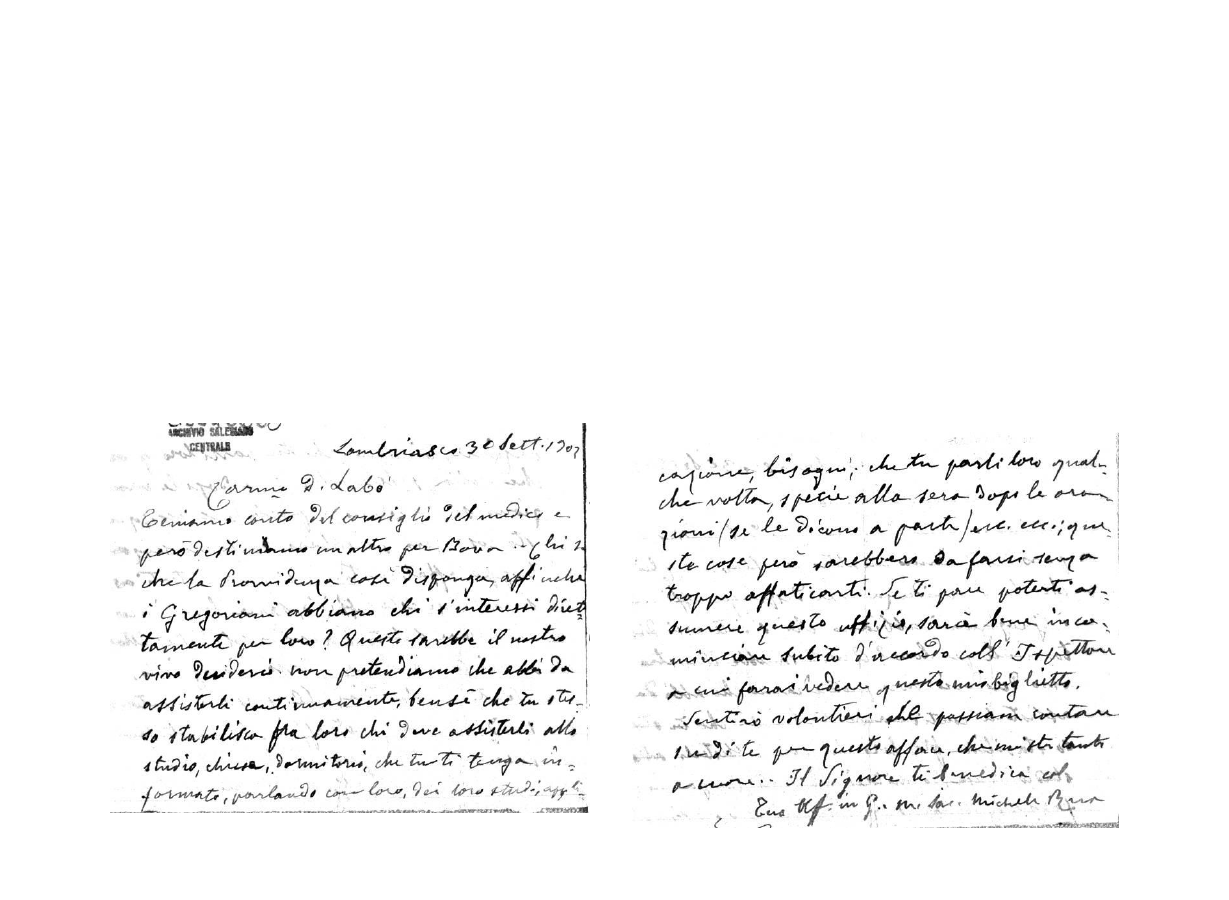 ARCHIVIO SALESIANO
CENTRALE
Lombriasco 30 Sett. 190
Carmo D. Labò
Teniamo conto del consiglio del medico e
però destiniamo un altro per Bova... Chi sa
che la Provvidenza così disponga, affinchè
i Gregoriani abbiano chi s'interessi diret-
tamente per loro? Questo sarebbe il nostro
vivo desiderio non pretendiamo che abbi da
assisterli continuamente, bensì che tu stes-
so stabilisca fra loro chi deve assisterli allo
studio, chiesa, dormitorio, che tu ti tenga in-
formato, parlando con loro, dei loro studi, appli-
cazione, bisogni; che tu parli loro qual-
che volta, specie alla sera dopo le ora-
zioni/se le dicono a parte/ecc. ecc.; que-
ste cose però sarebbero da farsi senza
troppo affaticarti. Se ti pare poterti as-
sumere questo uffizio, sarà bene inco-
minciare subito d'accordo coll' Ispettore
a cui farai vedere questo mio biglietto.
Sentirò volontieri che possiam contare
su di te per questo affare, che mi sta tanto
a cuore.. Il Signore ti benedica col
Tuo aff. in G. M. Sac. Michele Rua